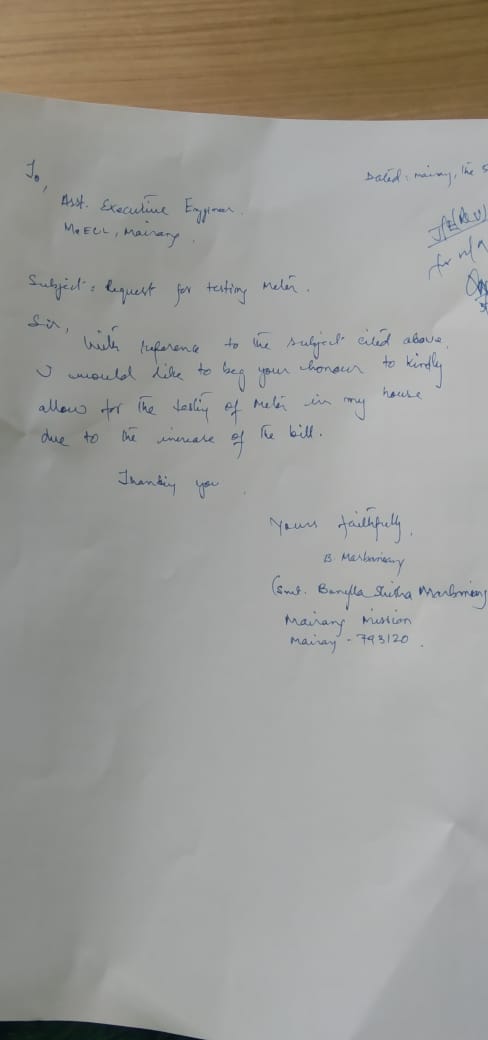 To,
Dated: Mairang, the 5
Asst. Executive Engineer.
MePECL, Mairang.
JE(R&V)
for n/a
Subject: Request for testing Meter.
Sir,
With reference to the subject cited above,
I would like to beg your honour to kindly
allow for the testing of Meter in my house
due to the increase of the bill.
Thanking you.
Yours faithfully,
B. Marbaniang
(Smt. Shisha Marbaniang
Mairang Mission
Mairang - 793120.